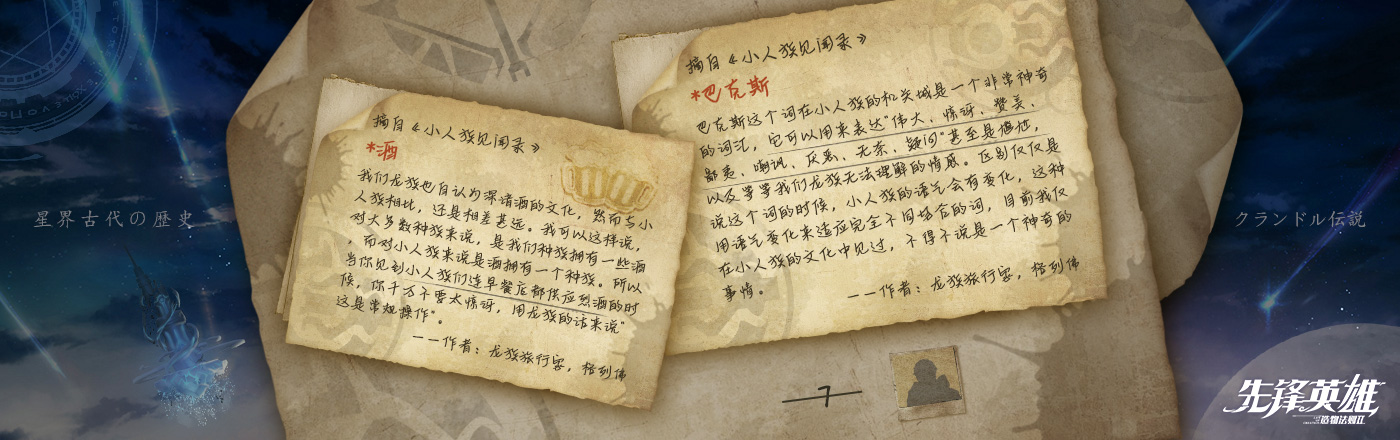 摘自《小人族见闻录》
*酒
我们龙族也自认为深谙酒的文化，然而与小
人族相比，还是相差甚远。我可以这样说，
对大多数种族来说，是我们种族拥有一些酒
，而对小人族来说是酒拥有一个种族。所以
当你见到小人族们连早餐店都供应烈酒的时
候，你千万不要太惊讶，用龙族的话来说"
这是常规操作"。
——作者：龙族旅行家，格列佛
摘自《小人族见闻录》
*巴克斯
巴克斯这个词在小人族的机关城是一个非常神奇
的词汇，它可以用来表达"伟大、惊讶、赞美、
鄙夷、嘲讽、厌恶、无奈、疑问"甚至是尴尬，
以及等等我们龙族无法理解的情感。区别仅仅是
说这个词的时候，小人族的语气会有变化，这种
用语气变化来适应完全不同场合的词，目前我仅
在小人族的文化中见过，不得不说是一个神奇的
事情。
——作者：龙族旅行家，格列佛
星界古代の歴史
クランドル伝説
7
先锋英雄
造物法则II